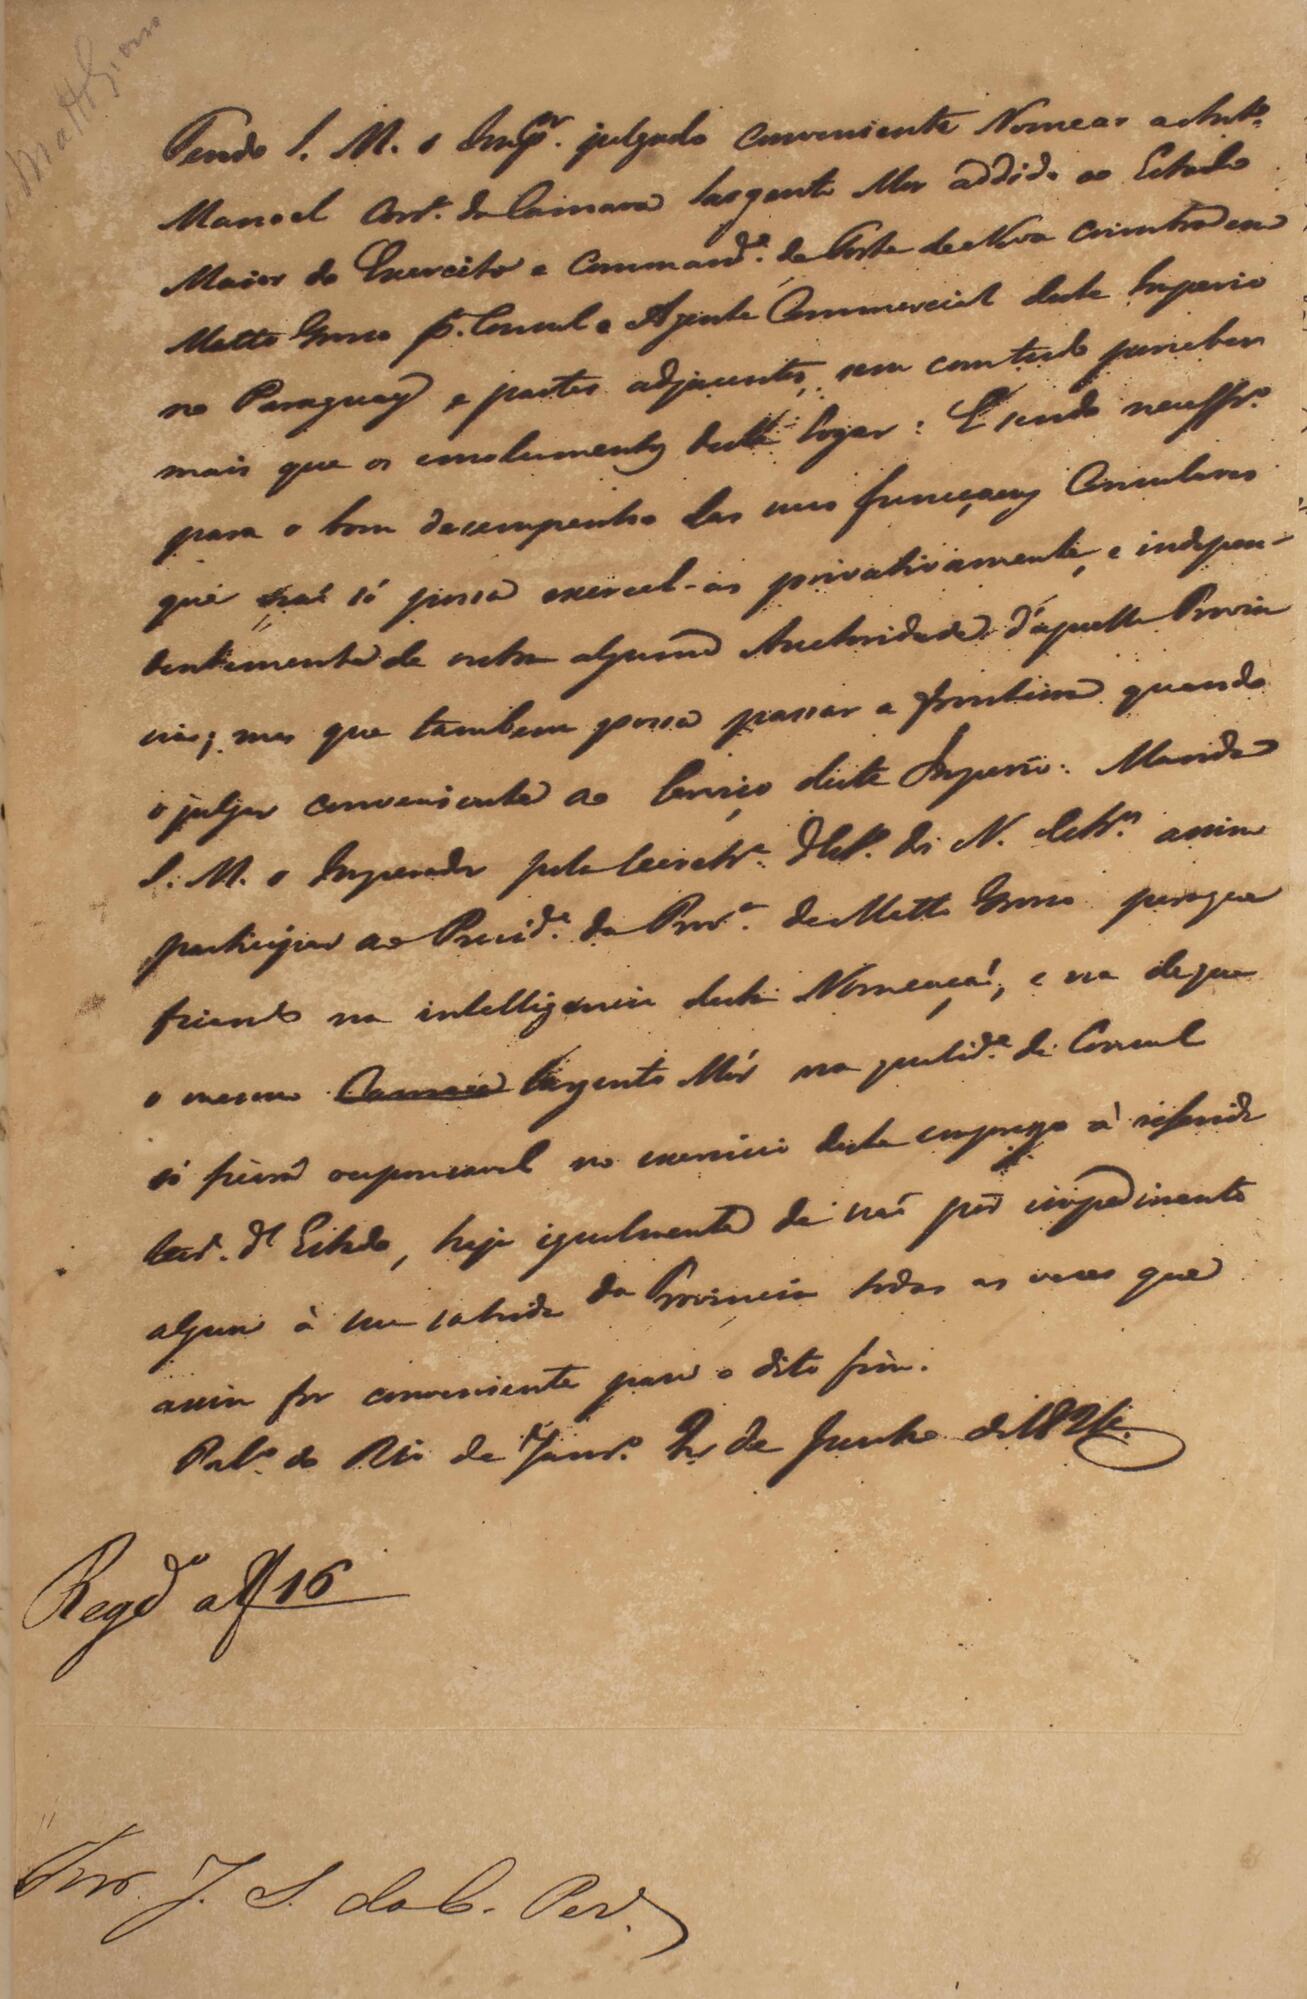 Matto Grosso
Tendo S. M. o Impor. julgado conveniente Nomear a Anto.
Manoel Corra. da Camara Sargento Mor addido ao Estado
Maior do Exercito e Commande. do Forte de Nova Coimbra em
Matto Grosso pa. Consul e Agente Commercial deste Imperio
no Paraguay e partes adjacentes, sem comtudo perceber
mais que os emolumentos deste lugar: E sendo necessro.
para o bom desempenho das suas funcçoens Consulares
que não só possa exercel-as privativamente, e indepen-
dentemente de outra alguma Auctoridade d'aquella Provin
cia; mas que tambem possa passar a fronteira quando
o julgar conveniente ao Serviço deste Imperio: Manda
S. M. o Imperador pela Secretra. d'Esto. dos N. Estros. assim
participar ao Preside. da Prova. de Matto Grosso para que
ficando na intelligencia desta Nomeação, e na de que
o mesmo Camara Sargento Mór na qualide. de Consul
só ficará responsavel no exercicio deste emprego à referida
Secra. d'Estado, haja igualmente de não pôr impedimento
algum à sua sahida da Provincia todas as vezes que
assim for conveniente para o dito fim.
Palo. do Rio de Janro. 2 de Junho de 1824.
Regdo a f 16
J. S. da C. Per.